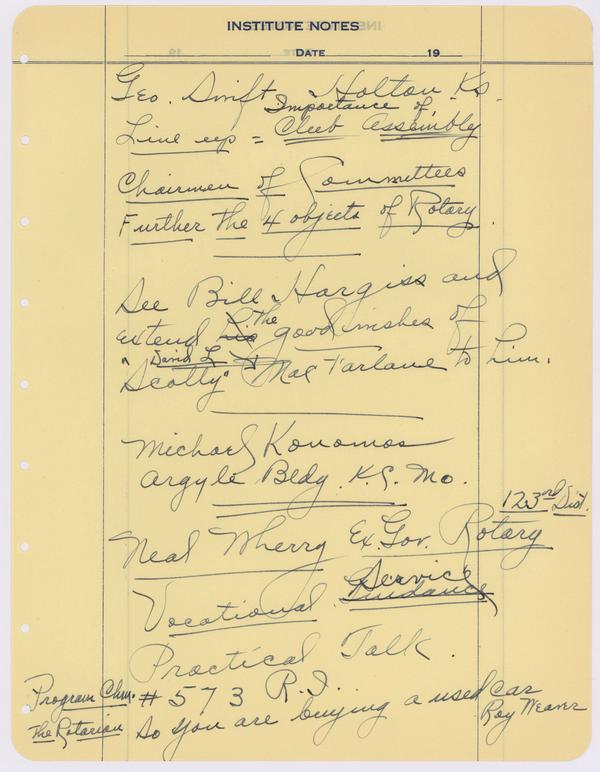 INSTITUTE NOTES
DATE 19
Geo. Swift - Holton Ks.
Importance of
Line up = Club Assembly
Chairmen of Committees
Further the 4 objects of Rotary.
See Bill Hargiss and
extend his the good wishes of
"David L
Scotty" MacFarlane to him.
Michael Konomos
Argyle Bldg. K.C. Mo.
123rd Dist.
Neal Wherry Ex. Gov. Rotary
Service
Vocational Guidance
Practical Talk.
Program Chm. #573 R.I.
The Rotarian So you are buying a used car
Roy Weaver